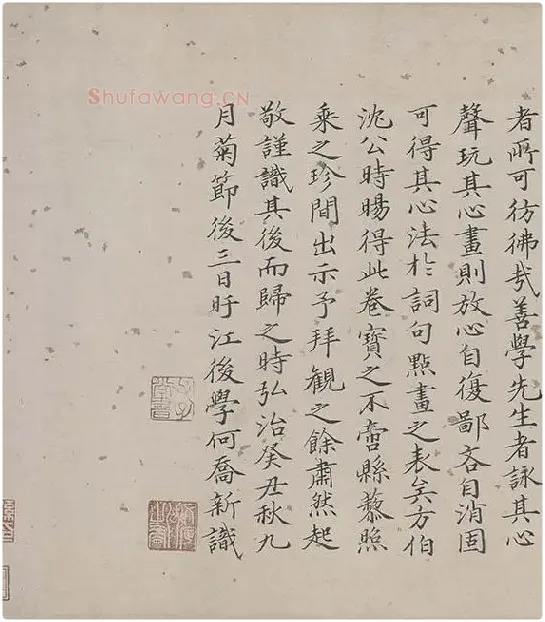 Shufawang.CN
者所可彷彿哉善學先生者詠其心
聲玩其心畫則放心自復鄙吝自消固
可得其心法於詞句點畫之表矣方伯
沈公時暘得此卷寶之不啻縣藜照
乘之珍間出示予拜觀之餘肅然起
敬謹識其後而歸之時弘治癸丑秋九
月菊節後三日盱江後學何喬新識